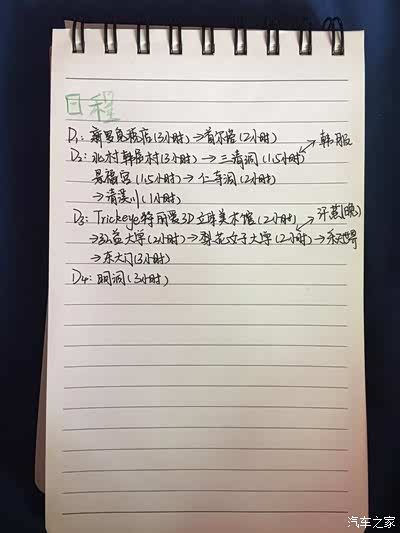 日程
D1：新罗免税店(3小时)→首尔塔(2小时)
D2：北村韩屋村(3小时)→三清洞(1.5小时) 韩服
景福宫(1.5小时)→仁寺洞(2小时)
→清溪川(1小时)
D3：Trickeye特丽爱3D立体美术馆(2小时) 汗蒸(晚)
→弘益大学(2小时)→梨花女子大学(2小时)→乐天世界
→东大门(3小时)
D4：明洞(3小时)
汽车之家